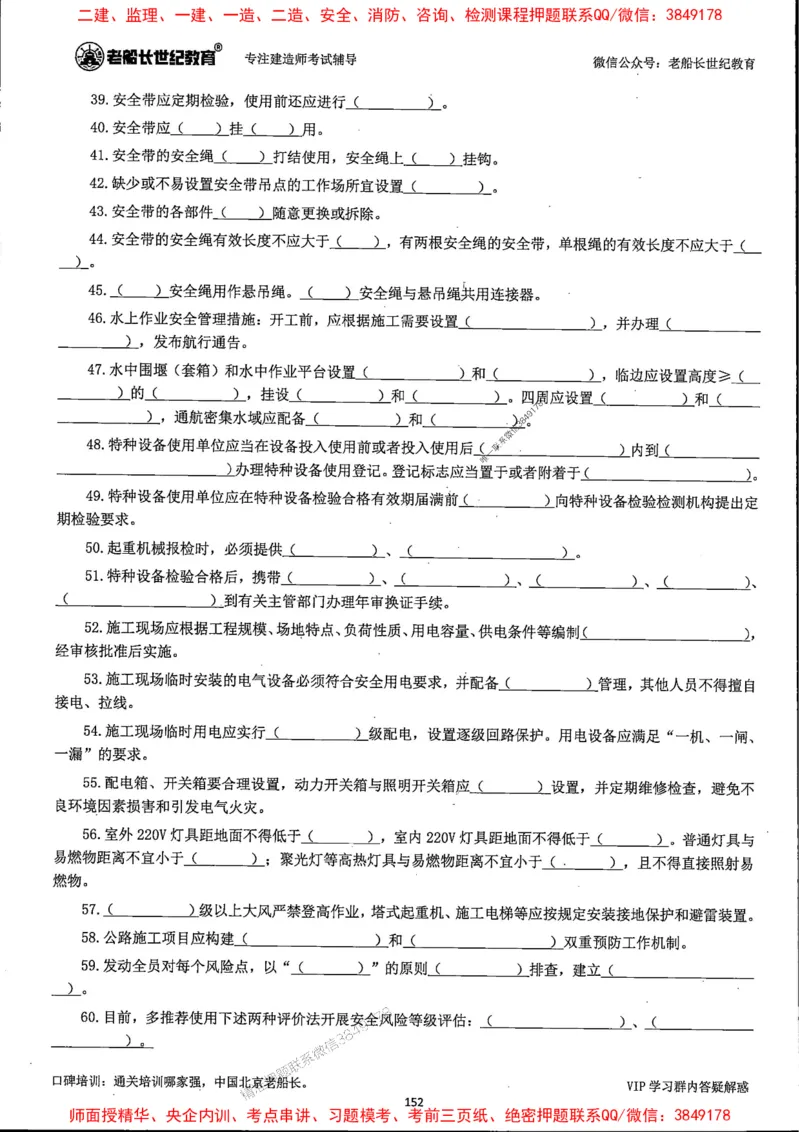 二建、监理、一建、一造、二造、安全、消防、咨询、检测课程押题联系QQ/微信：3849178
老船长世纪教育® 专注建造师考试辅导 微信公众号：老船长世纪教育
39.安全带应定期检验，使用前还应进行（ ）。
40.安全带应（ ）挂（ ）用。
41.安全带的安全绳（ ）打结使用，安全绳上（ ）挂钩。
42.缺少或不易设置安全带吊点的工作场所宜设置（ ）。
43.安全带的各部件（ ）随意更换或拆除。
44.安全带的安全绳有效长度不应大于（ ），有两根安全绳的安全带，单根绳的有效长度不应大于（
）。
45.（ ）安全绳用作悬吊绳。（ ）安全绳与悬吊绳共用连接器。
46.水上作业安全管理措施：开工前，应根据施工需要设置（ ），并办理（
），发布航行通告。
47.水中围堰（套箱）和水中作业平台设置（ ）和（ ），临边应设置高度≥（
）的（ ），挂设（ ）和（ ）。四周应设置（ ）和（
），通航密集水域应配备（ ）和（ ）。
48.特种设备使用单位应当在设备投入使用前或者投入使用后（ ）内到（
）办理特种设备使用登记。登记标志应当置于或者附着于（ ）。
49.特种设备使用单位应在特种设备检验合格有效期届满前（ ）向特种设备检验检测机构提出定
期检验要求。
50.起重机械报检时，必须提供（ ）、（ ）。
51.特种设备检验合格后，携带（ ）、（ ）、（ ）、（ ）、
（ ）到有关主管部门办理年审换证手续。
52.施工现场应根据工程规模、场地特点、负荷性质、用电容量、供电条件等编制（ ），
经审核批准后实施。
53.施工现场临时安装的电气设备必须符合安全用电要求，并配备（ ）管理，其他人员不得擅自
接电、拉线。
54.施工现场临时用电应实行（ ）级配电，设置逐级回路保护。用电设备应满足“一机、一闸、
一漏”的要求。
55.配电箱、开关箱要合理设置，动力开关箱与照明开关箱应（ ）设置，并定期维修检查，避免不
良环境因素损害和引发电气火灾。
56.室外 220V 灯具距地面不得低于（ ），室内 220V 灯具距地面不得低于（ ）。普通灯具与
易燃物距离不宜小于（ ）；聚光灯等高热灯具与易燃物距离不宜小于（ ），且不得直接照射易
燃物。
57.（ ）级以上大风严禁登高作业，塔式起重机、施工电梯等应按规定安装接地保护和避雷装置。
58.公路施工项目应构建（ ）和（ ）双重预防工作机制。
59.发动全员对每个风险点，以“（ ）”的原则（ ）排查，建立（
）。
60.目前，多推荐使用下述两种评价法开展安全风险等级评估：（ ）、（
）。
口碑培训：通关培训哪家强，中国北京老船长。 VIP 学习群内答疑解惑
152
师面授精华、央企内训、考点串讲、习题模考、考前三页纸、绝密押题联系QQ/微信：3849178